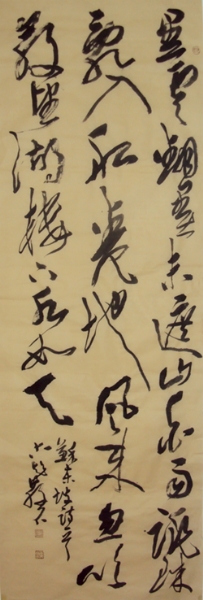 黑雲翻墨未遮山白雨跳珠
亂入船卷地風來忽吹
散望湖樓下水如天
蘇東坡詩